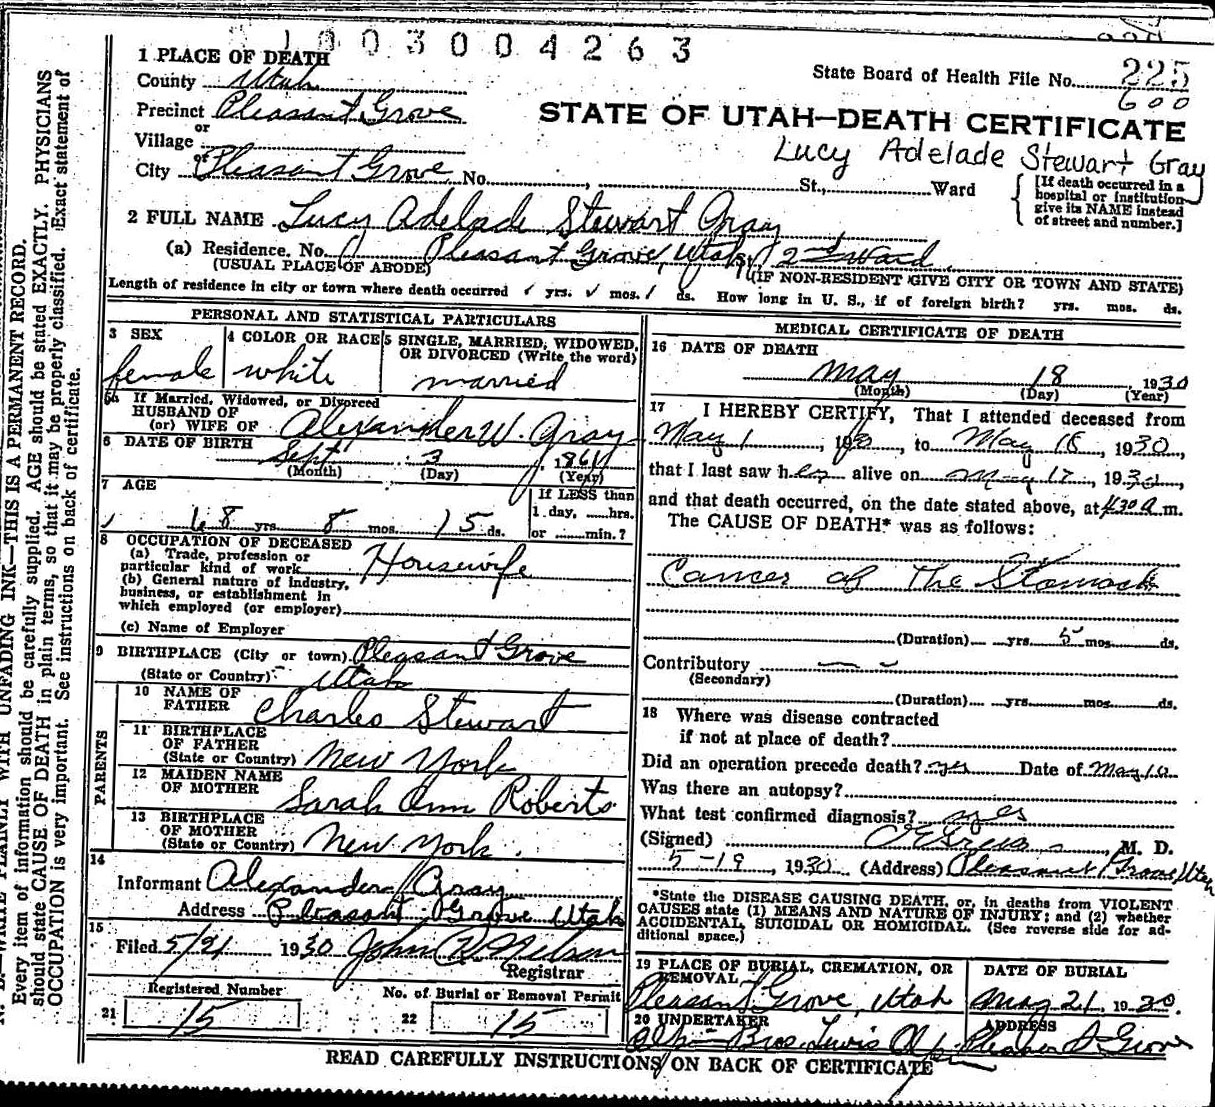 1003004263
1 PLACE OF DEATH
County Utah
State Board of Health File No. 225
600
Precinct Pleasant Grove
STATE OF UTAH—DEATH CERTIFICATE
or
Village
Lucy Adelade Stewart Gray
or
City Pleasant Grove No. , St., Ward
[If death occurred in a hospital or institution give its NAME instead of street and number.]
2 FULL NAME Lucy Adelade Stewart Gray
(a) Residence. No. Pleasant Grove, Utah 2nd Ward
(USUAL PLACE OF ABODE) (IF NON-RESIDENT GIVE CITY OR TOWN AND STATE)
Length of residence in city or town where death occurred yrs. mos. ds. How long in U. S., if of foreign birth? yrs. mos. ds.
PERSONAL AND STATISTICAL PARTICULARS
3 SEX
female
4 COLOR OR RACE
white
5 SINGLE, MARRIED, WIDOWED,
OR DIVORCED (Write the word)
married
5a If Married, Widowed, or Divorced
HUSBAND OF
(or) WIFE OF Alexander W. Gray
6 DATE OF BIRTH
Sept 3, 1861
(Month) (Day) (Year)
7 AGE
68 yrs. 8 mos. 15 ds.
If LESS than
1 day, hrs.
or min.?
8 OCCUPATION OF DECEASED
(a) Trade, profession or
particular kind of work Housewife
(b) General nature of industry,
business, or establishment in
which employed (or employer)
(c) Name of Employer
9 BIRTHPLACE (City or town) Pleasant Grove
(State or Country) Utah
PARENTS
10 NAME OF
FATHER Charles Stewart
11 BIRTHPLACE
OF FATHER
(State or Country) New York
12 MAIDEN NAME
OF MOTHER Sarah Ann Roberts
13 BIRTHPLACE
OF MOTHER
(State or Country) New York.
14
Informant Alexander Gray
Address Pleasant Grove Utah
15
Filed 5/21 1930 John Nelson
Registrar
Registered Number
21 15
No. of Burial or Removal Permit
22 15
MEDICAL CERTIFICATE OF DEATH
16 DATE OF DEATH
May 18, 1930
(Month) (Day) (Year)
17 I HEREBY CERTIFY, That I attended deceased from
May 1, to May 18, 1930,
that I last saw her alive on May 17, 1930,
and that death occurred, on the date stated above, at 4:30 a.m.
The CAUSE OF DEATH* was as follows:
Cancer of The Stomach
(Duration) yrs. 5 mos. ds.
Contributory
(Secondary)
(Duration) yrs. mos. ds.
18 Where was disease contracted
if not at place of death?
Did an operation precede death? yes Date of May 10
Was there an autopsy?
What test confirmed diagnosis? yes
(Signed) , M. D.
5-19, 1930 (Address) Pleasant Grove, Utah
*State the DISEASE CAUSING DEATH, or, in deaths from VIOLENT
CAUSES state (1) MEANS AND NATURE OF INJURY; and (2) whether
ACCIDENTAL, SUICIDAL OR HOMICIDAL. (See reverse side for ad-
ditional space.)
19 PLACE OF BURIAL, CREMATION, OR
REMOVAL
Pleasant Grove, Utah
DATE OF BURIAL
May 21, 1930.
20 UNDERTAKER
Bros. Lewis
ADDRESS
Pleasant Grove
READ CAREFULLY INSTRUCTIONS ON BACK OF CERTIFICATE
N. B.—WRITE PLAINLY WITH UNFADING INK—THIS IS A PERMANENT RECORD.
Every item of information should be carefully supplied. AGE should be stated EXACTLY. PHYSICIANS
should state CAUSE OF DEATH in plain terms, so that it may be properly classified. Exact statement of
OCCUPATION is very important. See instructions on back of certificate.